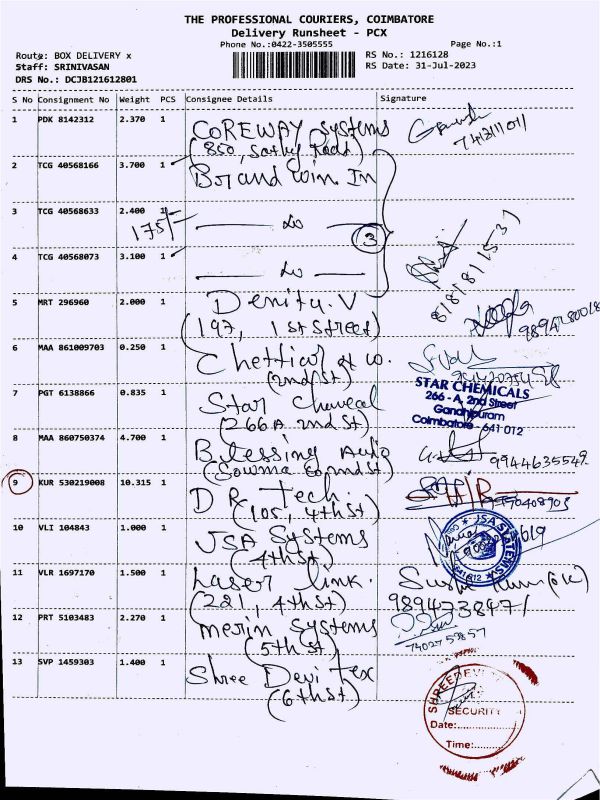 THE PROFESSIONAL COURIERS, COIMBATORE
Delivery Runsheet - PCX
Phone No.:0422-3505555
Page No.:1
Route: BOX DELIVERY x
RS No.: 1216128
Staff: SRINIVASAN
RS Date: 31-Jul-2023
DRS No.: DCJB121612801
S No Consignment No Weight PCS Consignee Details Signature
1 PDK 8142312 2.370 1 COREWAY Systems
(850, Sathy Road)
2 TCG 40568166 3.700 1 Brand Win In
3 TCG 40568633 2.400 1
175/-
3
4 TCG 40568073 3.100 1
5 MRT 296960 2.000 1 V
(197, 1st Street)
6 MAA 861009703 0.250 1 Chettiar & co.
(2nd St)
7 PGT 6138866 0.835 1 Star
(266A 2nd St)
STAR CHEMICALS
266 - A, 2nd Street
Gandhipuram
Coimbatore - 641 012
8 MAA 860750374 4.700 1 Blessing Auto
9944635549
9 KUR 530219008 10.315 1 D R Tech.
(105, 4th St)
9970408903
10 VLI 104843 1.000 1 JSA Systems
(4th St)
11 VLR 1697170 1.500 1 Laser link.
(221, 4th St)
9894738471
12 PRT 5103483 2.270 1 Merin Systems
(5th St)
7402759857
13 SVP 1459303 1.400 1 Shree Devi Tex
(6th St)
SHREE DEVI
SECURITY
Date:
Time: